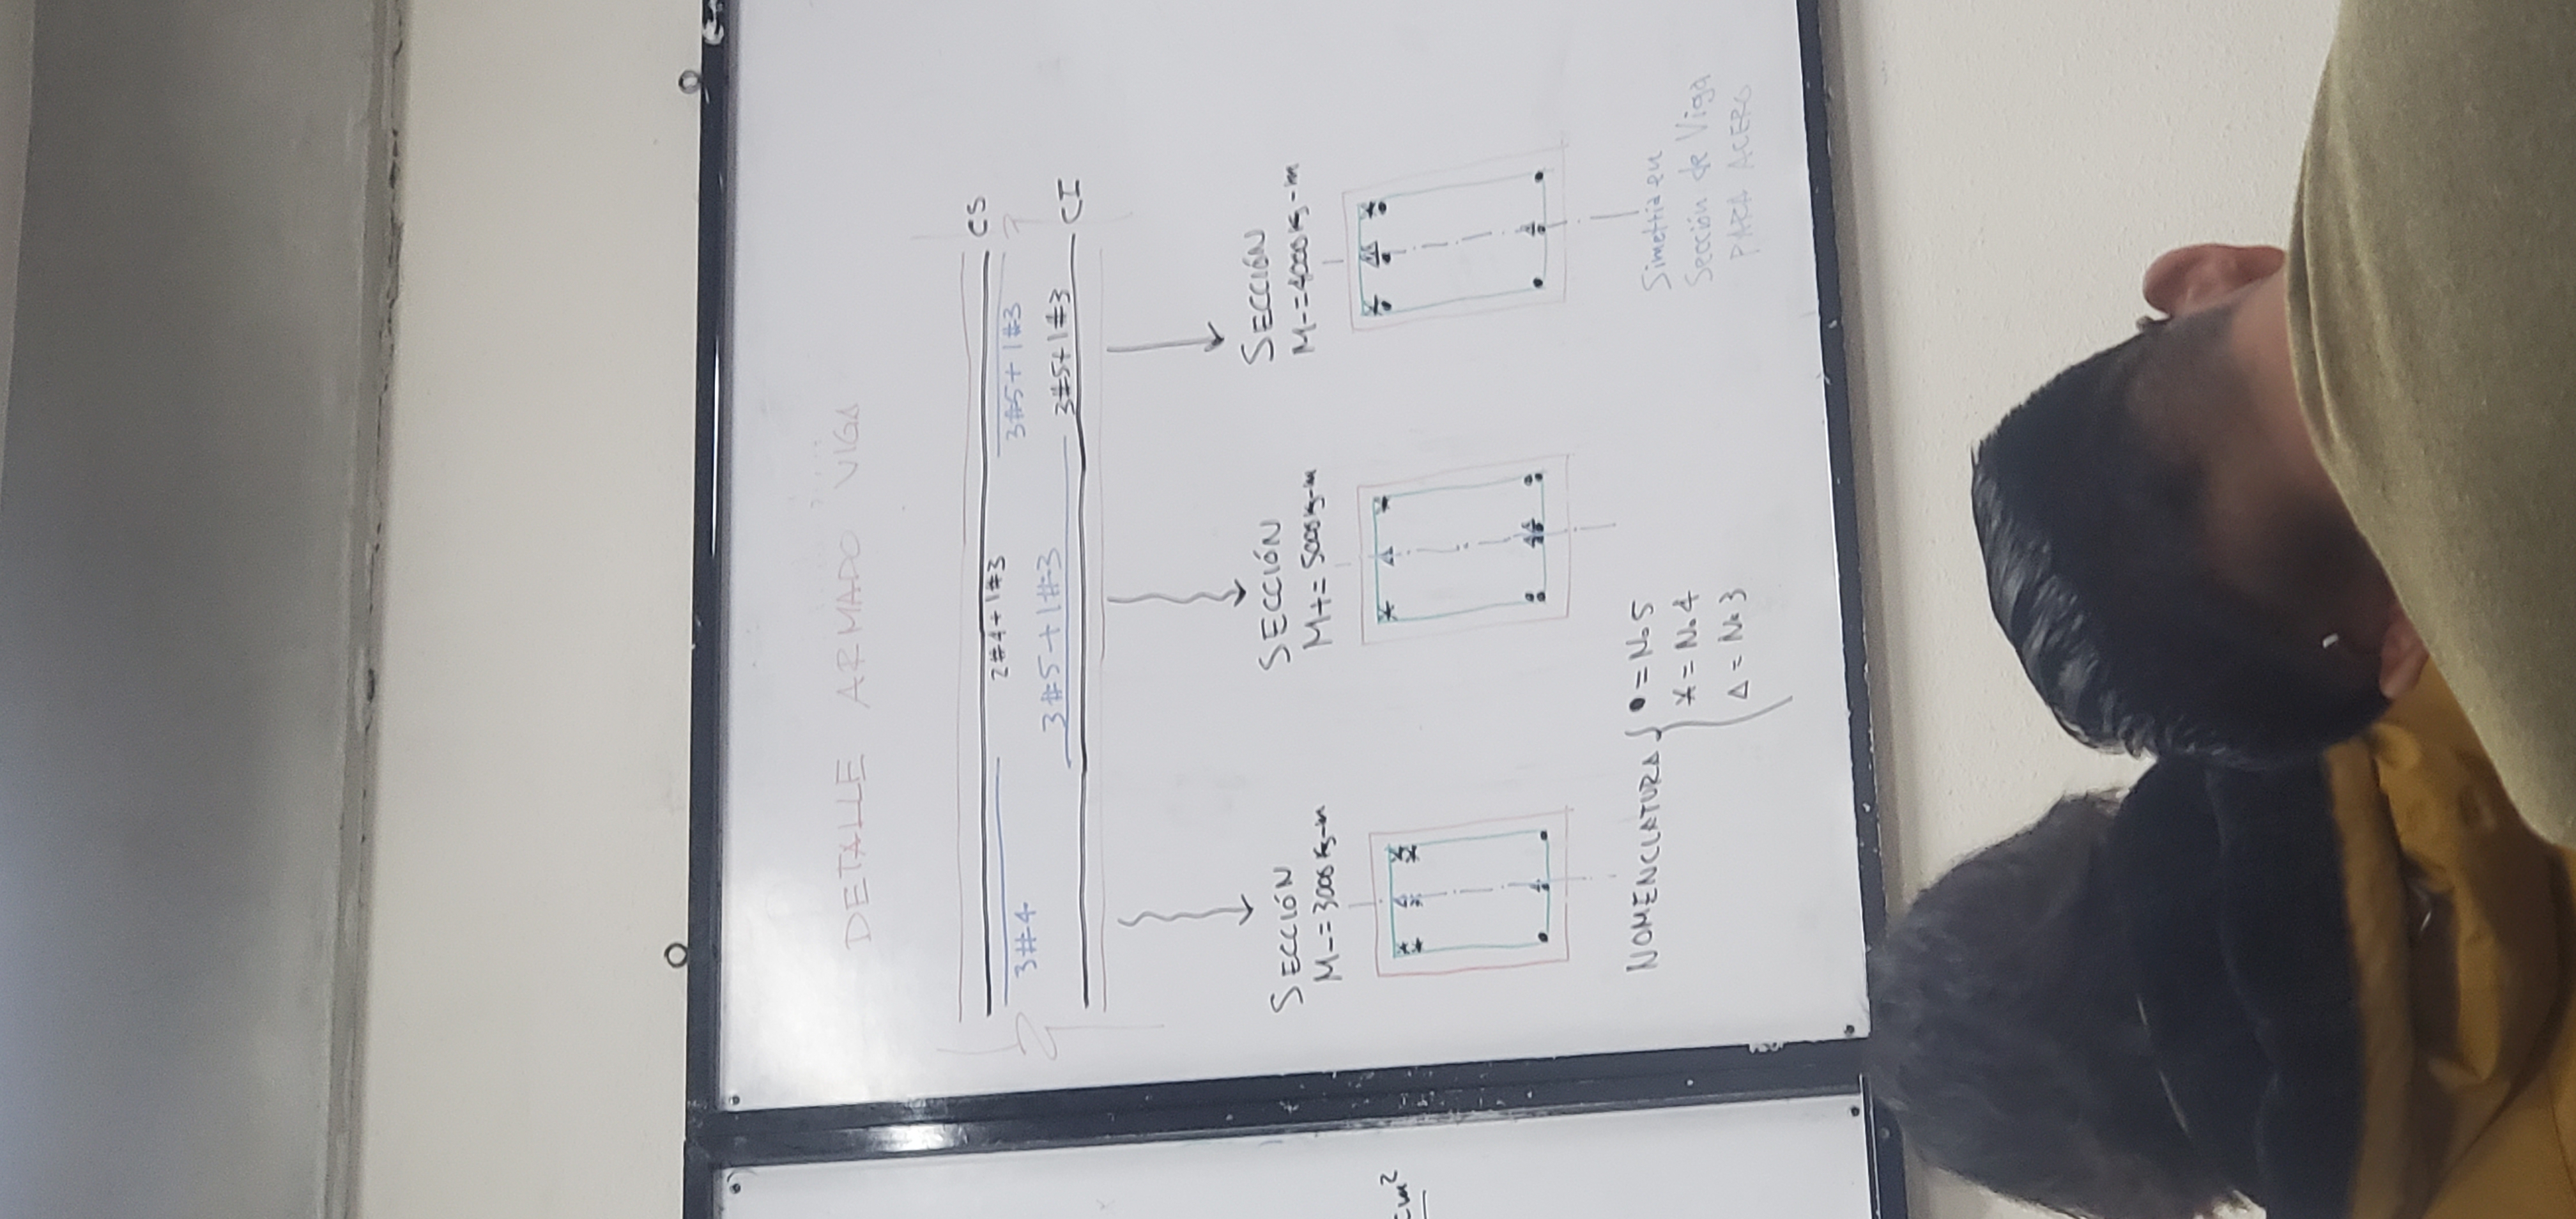 DETALLE ARMADO VIGA
CS
2#4+1#3
3#4
3#5+1#3
3#5+1#3
3#5+1#3
CI
SECCIÓN
M-=3000 Kg-m
SECCIÓN
M+=5000 Kg-m
SECCIÓN
M-=4000 Kg-m
cm²
NOMENCLATURA { • = No 5
* = No. 4
Δ = No 3
Simetría en
Sección de Viga
PARA ACERO